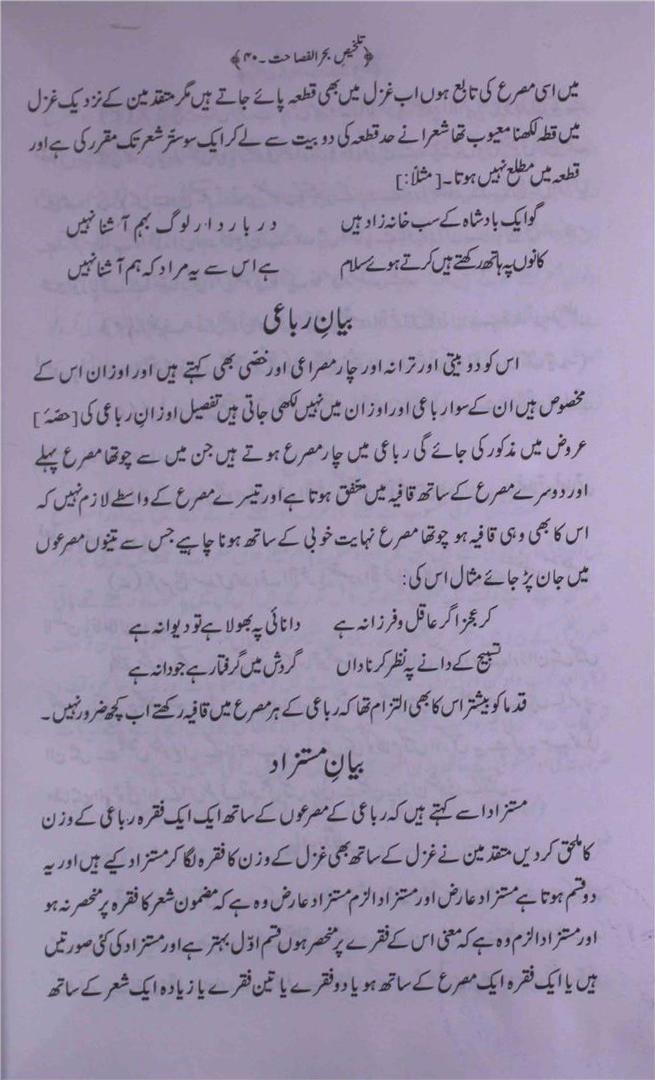 ﴿تلخیصِ بحر الفصاحت ۔ ۴۰﴾
میں اسی مصرع کی تابع ہوں اب غزل میں بھی قطعہ پائے جاتے ہیں مگر متقدمین کے نزدیک غزل
میں قطہ لکھنا معیوب تھا شعرا نے حد قطعہ کی دو بیت سے لے کر ایک سو ستّر شعر تک مقرر کی ہے اور
قطعہ میں مطلع نہیں ہوتا۔ [مثلاً:]
گو ایک بادشاہ کے سب خانہ زاد ہیں دربار دار لوگ بہم آشنا نہیں
کانوں پہ ہاتھ رکھتے ہیں کرتے ہوئے سلام ہے اس سے یہ مراد کہ ہم آشنا نہیں
بیانِ رباعی
اس کو دو بیتی اور ترانہ اور چار مصراعی اور خصّی بھی کہتے ہیں اور اوزان اس کے
مخصوص ہیں ان کے سوا رباعی اور اوزان میں نہیں لکھی جاتی ہیں تفصیل اوزانِ رباعی کی [حصّۂ]
عروض میں مذکور کی جائے گی رباعی میں چار مصرع ہوتے ہیں جن میں سے چوتھا مصرع پہلے
اور دوسرے مصرع کے ساتھ قافیہ میں متّفق ہوتا ہے اور تیسرے مصرع کے واسطے لازم نہیں کہ
اس کا بھی وہی قافیہ ہو چوتھا مصرع نہایت خوبی کے ساتھ ہونا چاہیے جس سے تینوں مصرعوں
میں جان پڑ جائے مثال اس کی:
کر عجز اگر عاقل و فرزانہ ہے دانائی پہ بھولا ہے تو دیوانہ ہے
تسبیح کے دانے پہ نظر کر ناداں گردش میں گرفتار ہے جو دانہ ہے
قدما کو بیشتر اس کا بھی التزام تھا کہ رباعی کے ہر مصرع میں قافیہ رکھتے اب کچھ ضرور نہیں۔
بیانِ مستزاد
مستزاد اسے کہتے ہیں کہ رباعی کے مصرعوں کے ساتھ ایک ایک فقرہ رباعی کے وزن
کا ملحق کر دیں متقدمین نے غزل کے ساتھ بھی غزل کے وزن کا فقرہ لگا کر مستزاد کیے ہیں اور یہ
دو قسم ہوتا ہے مستزاد عارض اور مستزاد الزم مستزاد عارض وہ ہے کہ مضمون شعر کا فقرہ پر منحصر نہ ہو
اور مستزاد الزم وہ ہے کہ معنی اس کے فقرے پر منحصر ہوں قسم اوّل بہتر ہے اور مستزاد کی کئی صورتیں
ہیں یا ایک فقرہ ایک مصرع کے ساتھ ہو یا دو فقرے یا تین فقرے یا زیادہ ایک شعر کے ساتھ